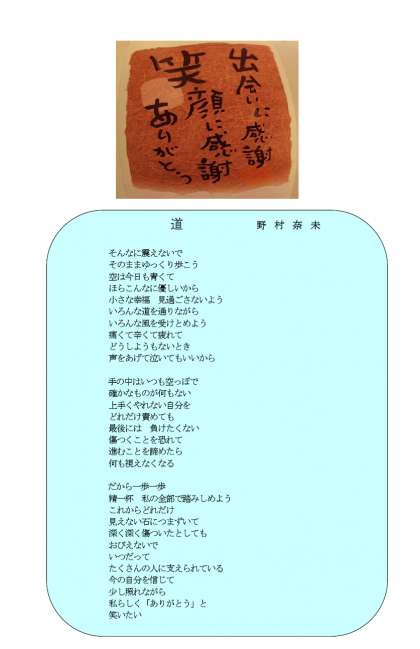 出会いに感謝
笑顔に感謝
ありがとう
道 野村奈未
そんなに震えないで
そのままゆっくり歩こう
空は今日も青くて
ほらこんなに優しいから
小さな幸福 見過ごさないよう
いろんな道を通りながら
いろんな風を受けとめよう
痛くて辛くて疲れて
どうしようもないとき
声をあげて泣いてもいいから
手の中はいつも空っぽで
確かなものが何もない
上手くやれない自分を
どれだけ責めても
最後には 負けたくない
傷つくことを恐れて
進むことを諦めたら
何も視えなくなる
だから一歩一歩
精一杯 私の全部で踏みしめよう
これからどれだけ
見えない石につまずいて
深く深く傷ついたとしても
おびえないで
いつだって
たくさんの人に支えられている
今の自分を信じて
少し照れながら
私らしく「ありがとう」と
笑いたい